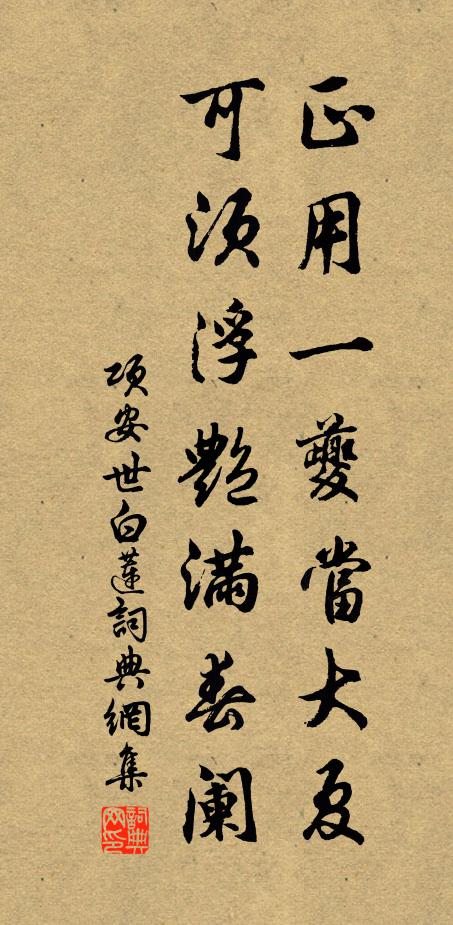 正用一夔當大夏
可須浮艷滿春闌
項安世白蓮詞典網集
詞典網印